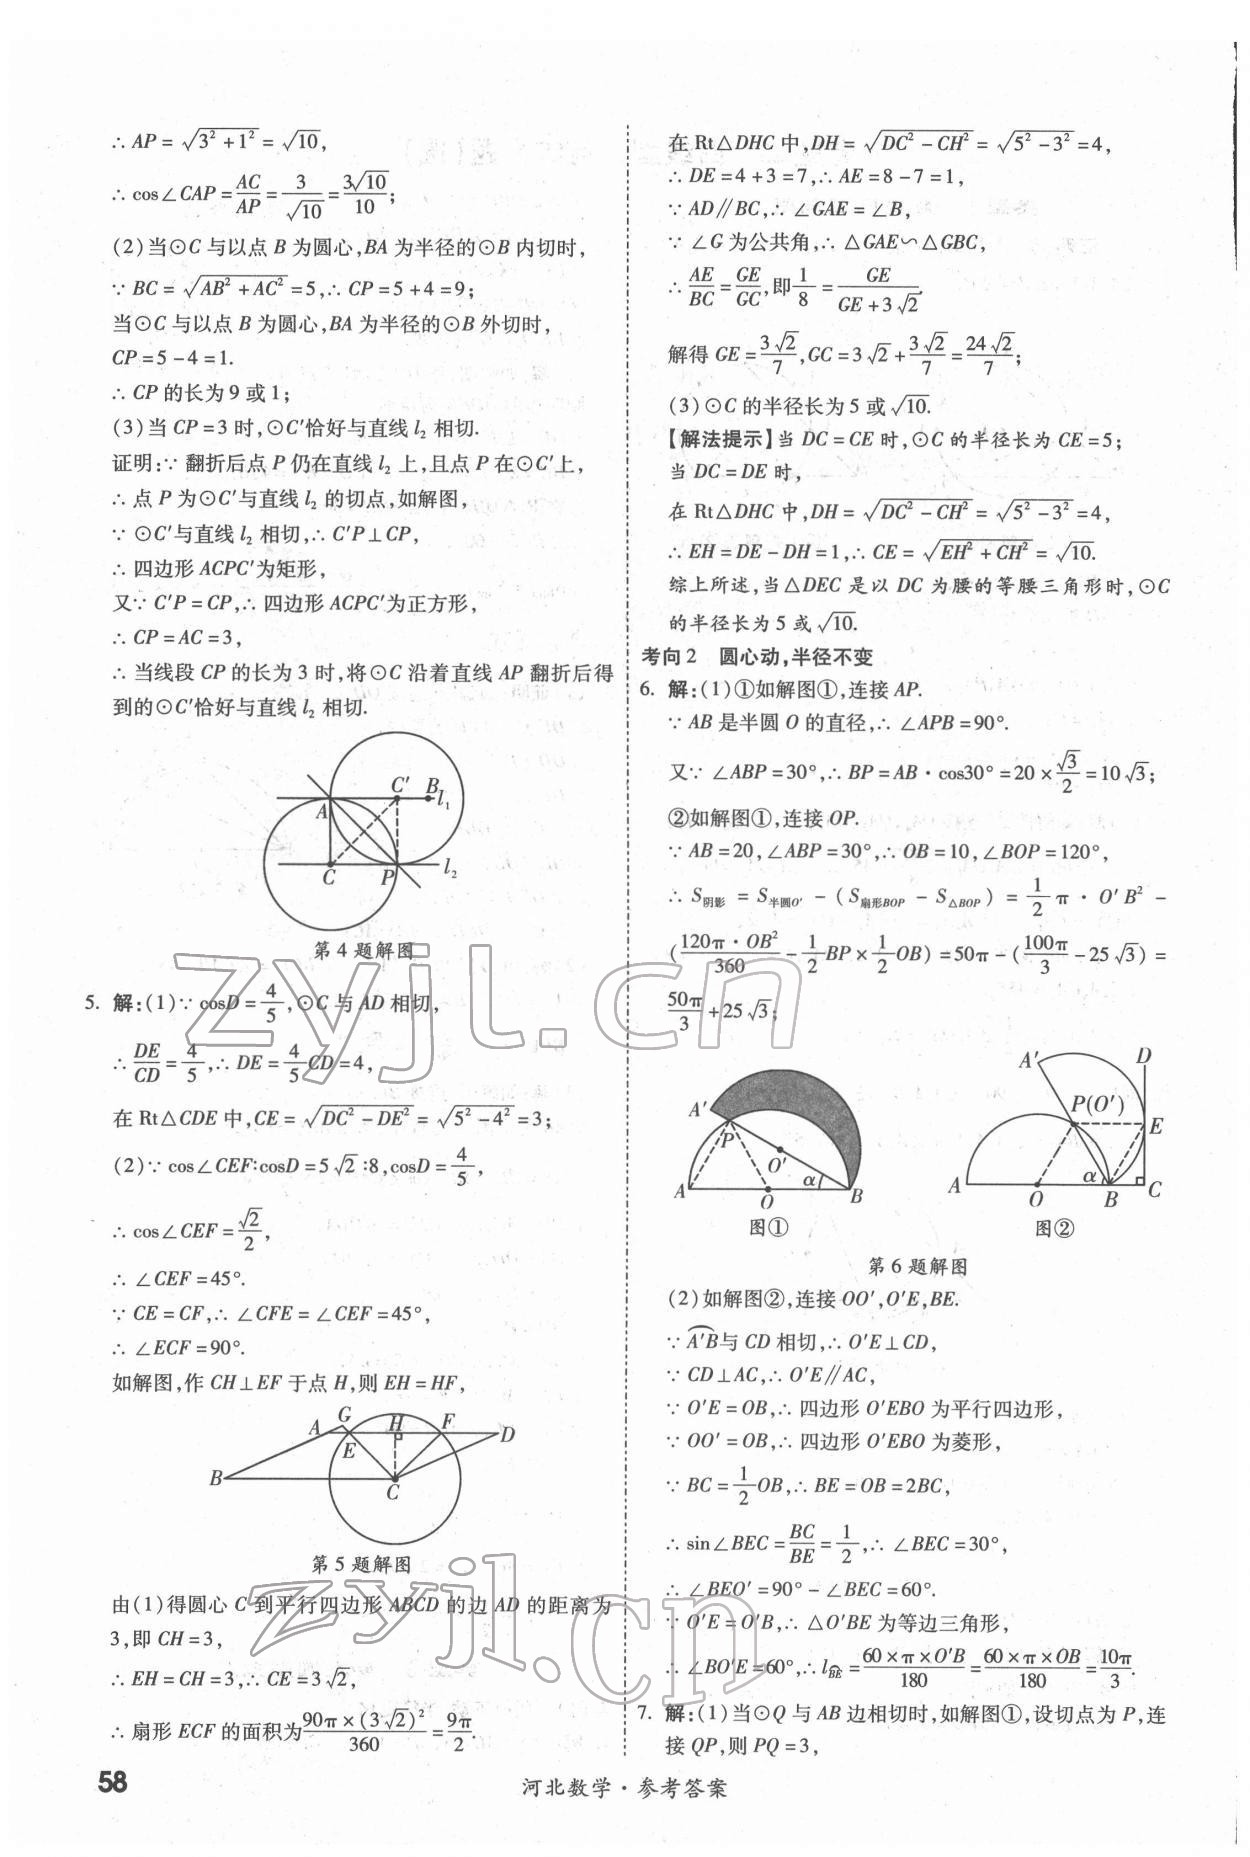 ∴ AP = √(3² + 1²) = √10,
∴ cos∠CAP = AC/AP = 3/√10 = 3√10/10;
(2)当⊙C 与以点 B 为圆心,BA 为半径的⊙B 内切时,
∵ BC = √(AB² + AC²) = 5,∴ CP = 5 + 4 = 9;
当⊙C 与以点 B 为圆心,BA 为半径的⊙B 外切时,
CP = 5 - 4 = 1.
∴ CP 的长为 9 或 1;
(3)当 CP = 3 时,⊙C′恰好与直线 l₂ 相切.
证明:∵ 翻折后点 P 仍在直线 l₂ 上,且点 P 在⊙C′上,
∴ 点 P 为⊙C′与直线 l₂ 的切点,如解图,
∵ ⊙C′与直线 l₂ 相切,∴ C′P⊥CP,
∴ 四边形 ACPC′为矩形,
又∵ C′P = CP,∴ 四边形 ACPC′为正方形,
∴ CP = AC = 3,
∴ 当线段 CP 的长为 3 时,将⊙C 沿着直线 AP 翻折后得
到的⊙C′恰好与直线 l₂ 相切.
C′ B
A l₁
C P l₂
第 4 题解图
5. 解:(1)∵ cosD = 4/5,⊙C 与 AD 相切,
∴ DE/CD = 4/5,∴ DE = 4/5 CD = 4,
在 Rt△CDE 中,CE = √(DC² - DE²) = √(5² - 4²) = 3;
(2)∵ cos∠CEF∶cosD = 5√2∶8,cosD = 4/5,
∴ cos∠CEF = √2/2,
∴ ∠CEF = 45°.
∵ CE = CF,∴ ∠CFE = ∠CEF = 45°,
∴ ∠ECF = 90°.
如解图,作 CH⊥EF 于点 H,则 EH = HF,
A G H F D
E
B C
第 5 题解图
由(1)得圆心 C 到平行四边形 ABCD 的边 AD 的距离为
3,即 CH = 3,
∴ EH = CH = 3,∴ CE = 3√2,
∴ 扇形 ECF 的面积为 90π × (3√2)²/360 = 9π/2.
在 Rt△DHC 中,DH = √(DC² - CH²) = √(5² - 3²) = 4,
∴ DE = 4 + 3 = 7,∴ AE = 8 - 7 = 1,
∵ AD∥BC,∴ ∠GAE = ∠B,
∵ ∠G 为公共角,∴ △GAE∽△GBC,
∴ AE/BC = GE/GC,即 1/8 = GE/(GE + 3√2).
解得 GE = 3√2/7,GC = 3√2 + 3√2/7 = 24√2/7;
(3)⊙C 的半径长为 5 或√10.
【解法提示】当 DC = CE 时,⊙C 的半径长为 CE = 5;
当 DC = DE 时,
在 Rt△DHC 中,DH = √(DC² - CH²) = √(5² - 3²) = 4,
∴ EH = DE - DH = 1,∴ CE = √(EH² + CH²) = √10.
综上所述,当△DEC 是以 DC 为腰的等腰三角形时,⊙C
的半径长为 5 或√10.
考向 2 圆心动,半径不变
6. 解:(1)①如解图①,连接 AP.
∵ AB 是半圆 O 的直径,∴ ∠APB = 90°.
又∵ ∠ABP = 30°,∴ BP = AB · cos30° = 20 × √3/2 = 10√3;
②如解图①,连接 OP.
∵ AB = 20,∠ABP = 30°,∴ OB = 10,∠BOP = 120°,
∴ S阴影 = S半圆O′ - (S扇形BOP - S△BOP) = 1/2 π · O′B² -
(120π · OB²/360 - 1/2 BP × 1/2 OB) = 50π - (100π/3 - 25√3) =
50π/3 + 25√3;
A′ P O′ α A O B
图①
A′ D P(O′) E A α O B C
图②
第 6 题解图
(2)如解图②,连接 OO′,O′E,BE.
∵ A′B⌒与 CD 相切,∴ O′E⊥CD,
∵ CD⊥AC,∴ O′E∥AC,
∵ O′E = OB,∴ 四边形 O′EBO 为平行四边形,
∵ OO′ = OB,∴ 四边形 O′EBO 为菱形,
∵ BC = 1/2 OB,∴ BE = OB = 2BC,
∴ sin∠BEC = BC/BE = 1/2,∴ ∠BEC = 30°,
∴ ∠BEO′ = 90° - ∠BEC = 60°.
∵ O′E = O′B,∴ △O′BE 为等边三角形,
∴ ∠BO′E = 60°,∴ l⌒BE = 60 × π × O′B/180 = 60 × π × OB/180 = 10π/3.
7. 解:(1)当⊙Q 与 AB 边相切时,如解图①,设切点为 P,连
接 QP,则 PQ = 3,
58
河北数学 · 参考答案
zyjl.cn
zyjl.cn